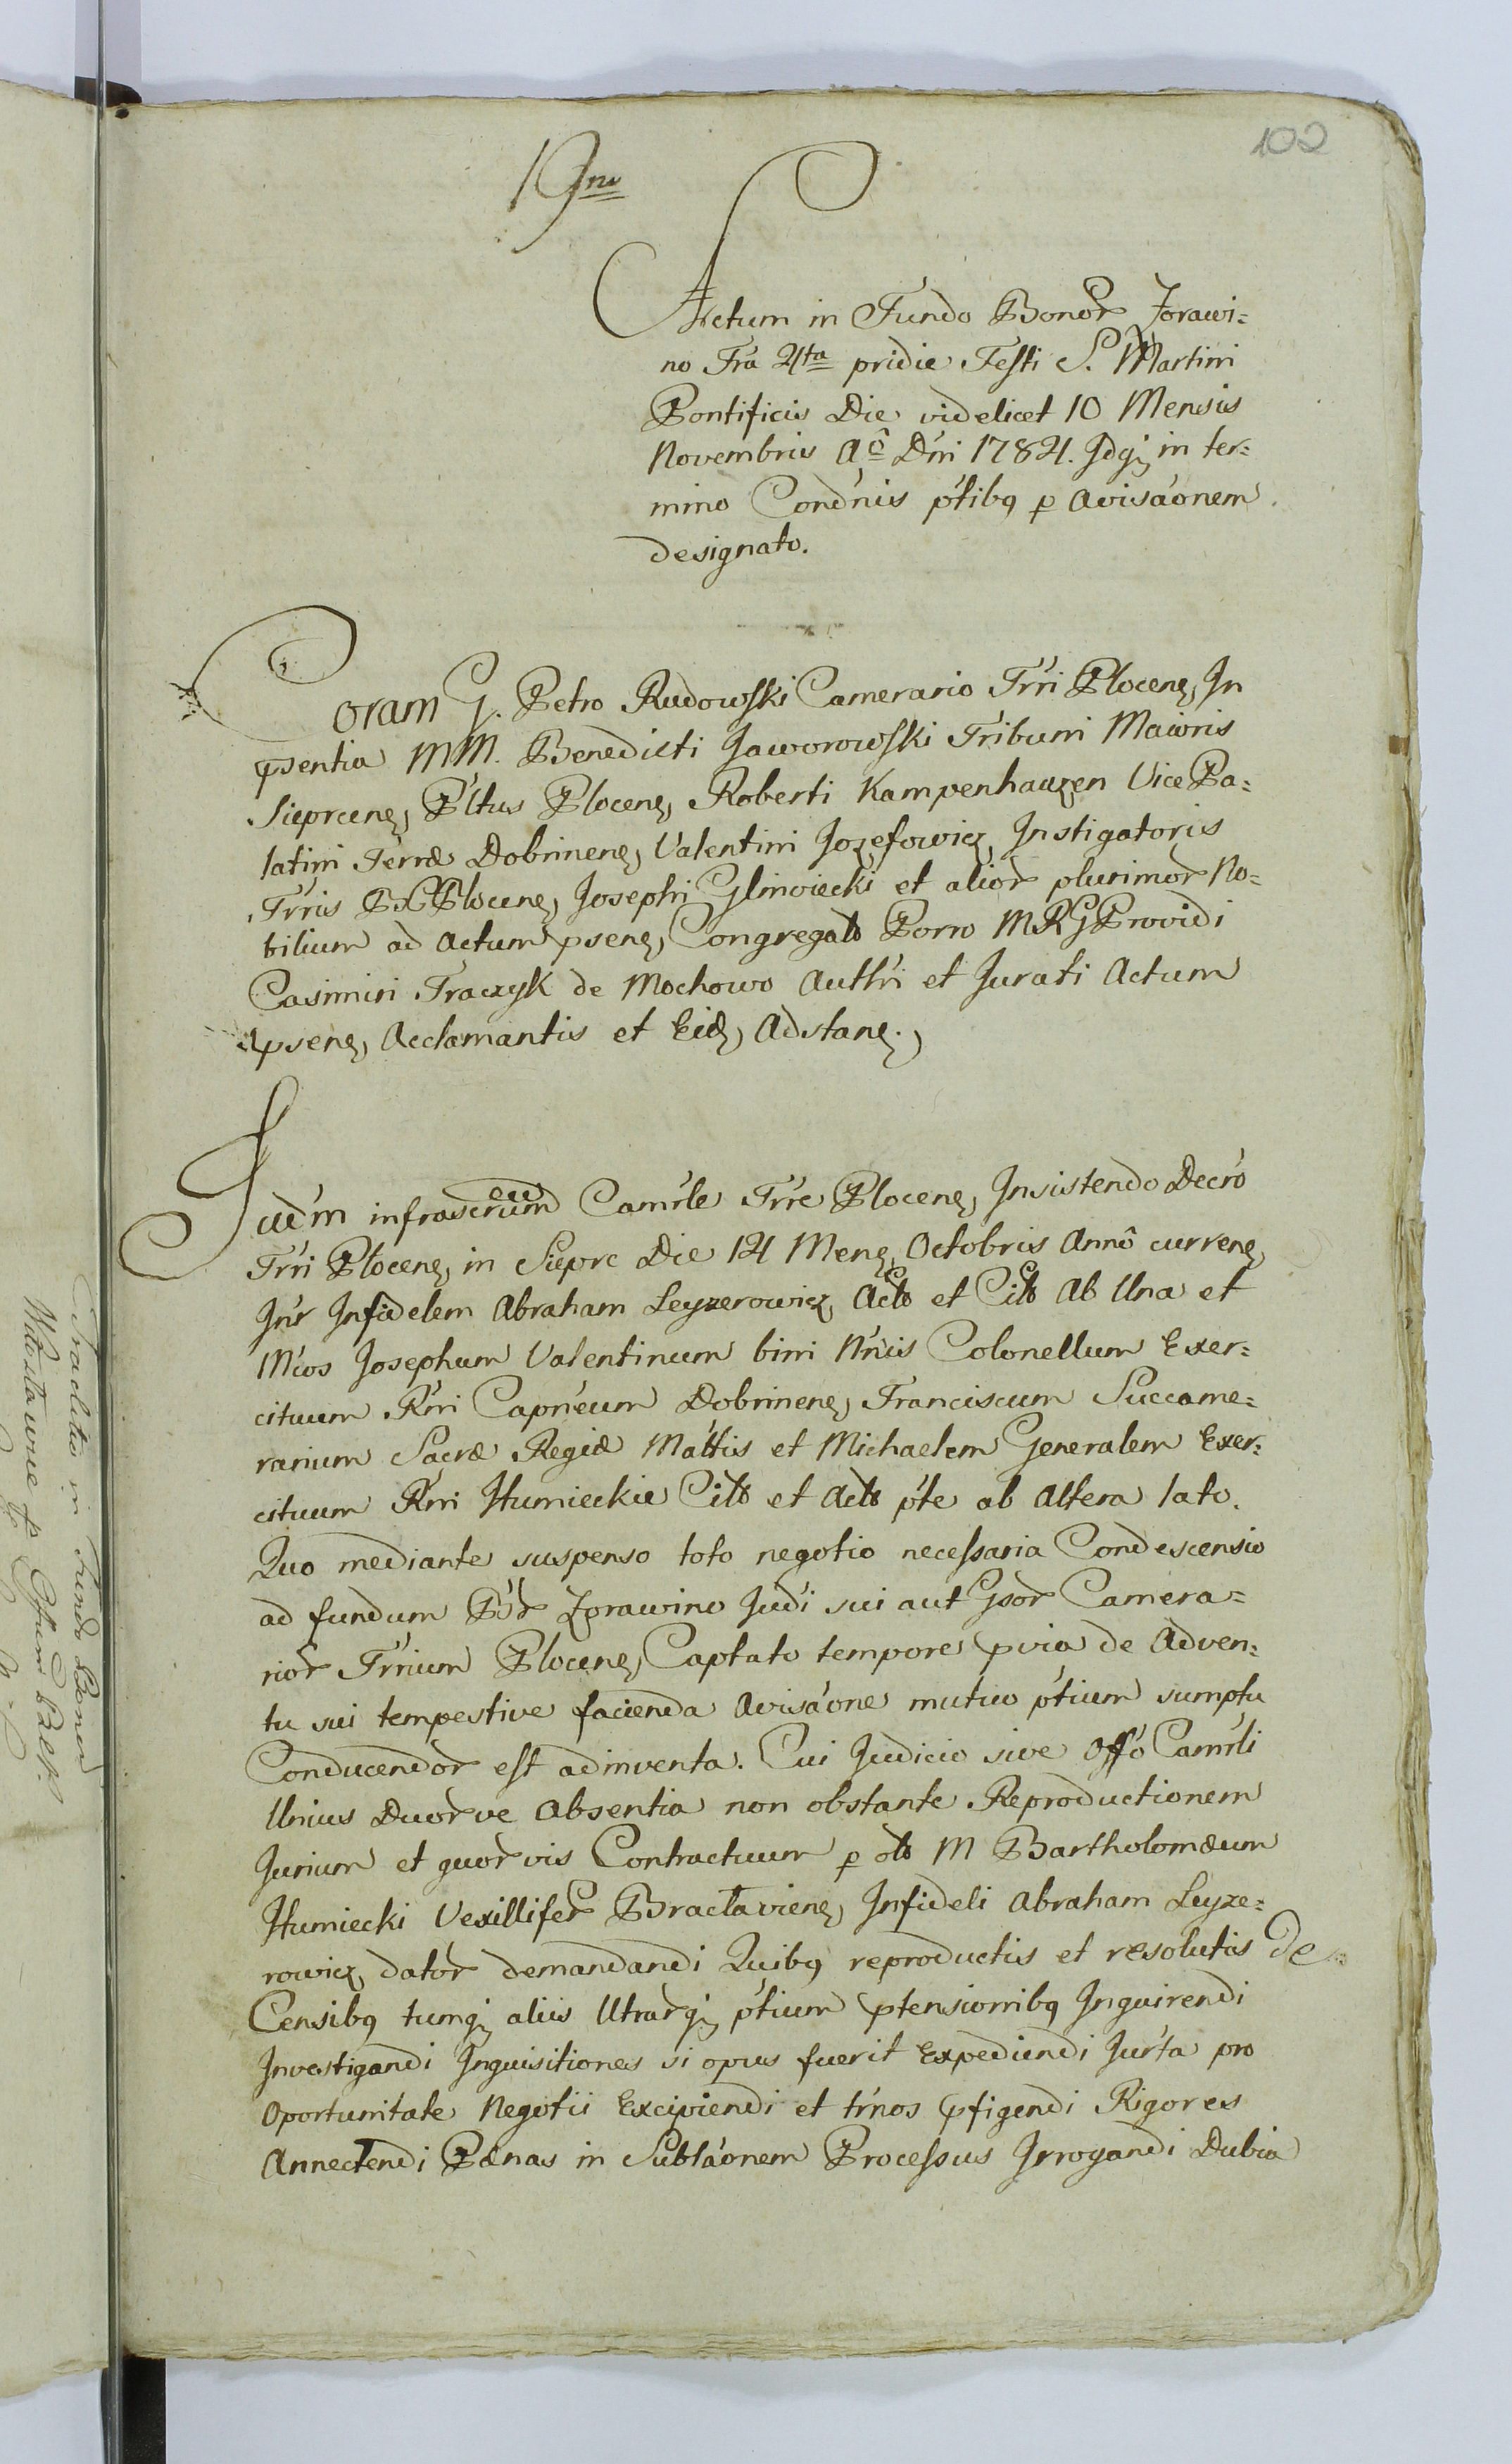 102
19no
Actum in Fundo Bonor Zorawi=
no Fra 4ta pridie Festi S. Martini
Pontificis Die videlicet 10 Mensis
Novembris Aō Dni 1784. Idqz in ter=
mino Condnis ptibq p Avisaonem
designato.
Coram G. Petro Rudowski Camerario Trri Plocenę, In
psentia MM. Benedicti Jaworowski Tribuni Maioris
Sieprcenę, Pltus Plocenę, Roberti Kampenhauzen Vice Pa=
latini Terræ Dobrinenę, Valentini Jozefowicz, Instigatoris
Trris Plocenę, Josephi Glinoiecki et alior plurimor No=
bilium ad Actum psenę, Congregato Porro MRG Providi
Casimiri Traczyk de Mochowo Authri et Jurati Actum
psenę, Acclamantis et Eid, Adstanę.,
Judm infrascrum Camrle Trre Plocenę, Insistendo Decro
Trri Plocenę, in Sieprc Die 14 Menę, Octobris Annô currenę,
Intr Infidelem Abraham Leyzerowicz, Acto et Cito Ab Una et
Mcos Josephum Valentinum bini Nnis Colonellum Exer=
cituum Rni Capneum Dobrinenę, Franciscum Succame=
rarium Sacræ Regiæ Mattis et Michaelem Generalem Exer=
cituum Rni Humieckie Cito et Acto pte ab Altera lato.
Quo mediante suspenso toto negotio necessaria Condescensio
ad fundum Bor Zorawino Judi sui aut Gsor Camera=
rior Trrium Plocenę, Captato tempore pvia de Adven=
tu sui tempestive facienda Avisaone mutuo ptium sumptu
Conducendor est adinventa. Cui Judicio sive Offo Camrli
Unius Duorve Absentia non obstante Reproductionem
Jurium et quorvis Contractuum p olo M Bartholomæum
Humiecki Vexillifer Bractavienę, Infideli Abraham Leyze=
rowicz, dator demandandi Quibq reproductis et resolutis De
Censibq tumqz aliis Utrarqz ptium ptensionibq Inquirendi
Investigandi Inquisitiones si opus fuerit Expediendi Jurta pro
Oportunitate Negotii Excipiendi et trnos pfigendi Rigores
Annectendi Pænas in Sublaonem Processus Irrogandi Dubia
Traditio in Fundo Bonor